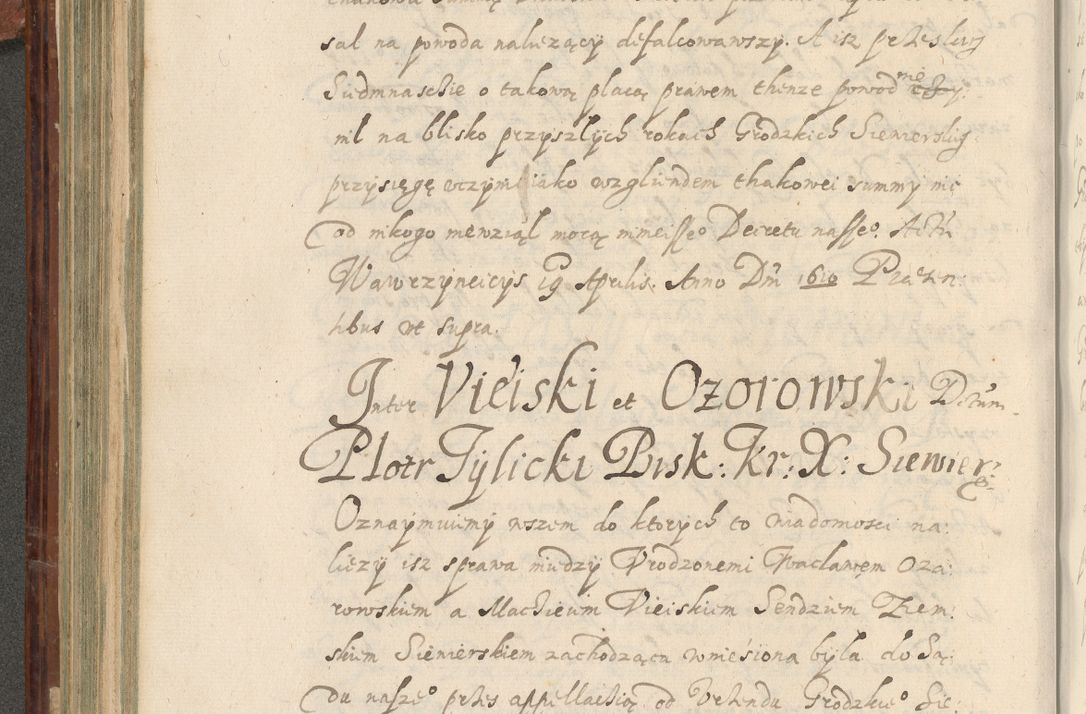 sal na powoda nalezący defalcowawszy. A isz przesłuch
Siedmnascie o takową płacą prawem thenze powod nie
nil na blisko przyszłych rokach Grodzkich Siewierskig
przysięgę uczynil iako względem thakowei summy nic
od nikogo niewziął mocą ninieisse° Decretu nasse°. Actu
Wawrzynczycys 19 Aprilis. Anno Dni 1610 Praesen:
tibus ut supra.
Inter Vieiski et Ozorowski Dctum
Piotr Tylicki Bisk: Kr: X: Siewier:
Oznaymuiemy wszem do ktorych to wiadomosci na:
liezy isz sprawa miedzy Vrodzonemi Wacławem Oza:
rowskiem a Machieiem Vieiskiem Sendziem Ziem:
skiem Siewierskiem zachodząca wniesiona była do Są:
du nasze° przes appellacią od Vrzendu Grodzkie° Sie: